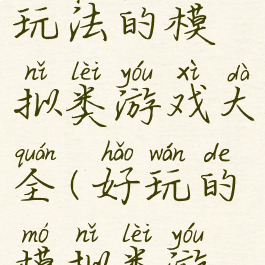 玩法的模
nǐ lèi yóu xì dà
拟类游戏大
quán hǎo wán de
全(好玩的
mó nǐ lèi yóu
模拟类游